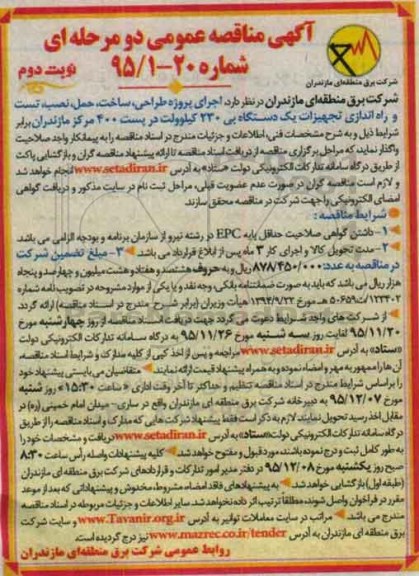 آگهی مناقصه عمومی دو مرحله ای
شماره ۲۰-۹۵/۱
نوبت دوم
شرکت برق منطقه‌ای مازندران
شرکت برق منطقه‌ای مازندران در نظر دارد، اجرای پروژه طراحی، ساخت، حمل، نصب، تست
و راه اندازی تجهیزات یک دستگاه بی ۲۳۰ کیلوولت در پست ۴۰۰ مرکز مازندران برابر
شرایط ذیل و به شرح مشخصات فنی، اطلاعات و جزئیات مندرج در اسناد مناقصه را به پیمانکار واجد صلاحیت
واگذار نماید، که مراحل برگزاری مناقصه از دریافت اسناد مناقصه تا ارائه پیشنهاد مناقصه گران و بازگشایی پاکت
از طریق درگاه سامانه تدارکات الکترونیکی دولت «ستاد» به آدرس www.setadiran.ir انجام خواهد شد
و لازم است مناقصه گران در صورت عدم عضویت قبلی، مراحل ثبت نام در سایت مذکور و دریافت گواهی
امضای الکترونیکی را جهت شرکت در مناقصه محقق سازند.
شرایط مناقصه:
۱- داشتن گواهی صلاحیت حداقل پایه EPC در رشته نیرو از سازمان برنامه و بودجه الزامی می باشد.
۲- مدت تحویل کالا و اجرای کار ۳ ماه پس از ابلاغ قرارداد می باشد ۳- مبلغ تضمین شرکت
در مناقصه به عدد: ۸۷۸/۴۵۰/۰۰۰ ریال و به حروف هشتصد و هفتاد و هشت میلیون و چهارصد و پنجاه
هزار ریال می باشد که باید به صورت ضمانتنامه بانکی، وجه نقد و یا یکی از موارد مشروحه در تصویب نامه شماره
۱۲۳۴۰۲/ت۵۰۶۵۹هـ مورخ ۱۳۹۴/۹/۲۲ هیأت وزیران (برابر شرح مندرج در اسناد مناقصه) ارائه گردد.
از شرکت های واجد شرایط دعوت می گردد جهت دریافت اسناد مناقصه از روز چهارشنبه مورخ
۹۵/۱۱/۲۰ لغایت روز سه شنبه مورخ ۹۵/۱۱/۲۶ به درگاه سامانه تدارکات الکترونیکی دولت
«ستاد» به آدرس www.setadiran.ir مراجعه و پس از اخذ کپی از کلیه مدارک و شرایط اسناد مناقصه،
آن ها را ممهور به مهر و امضاء نموده و به همراه پیشنهاد قیمت ارائه نمایند. متقاضیان می بایستی پیشنهاد خود
را براساس شرایط مندرج در اسناد مناقصه تنظیم و حداکثر تا آخر وقت اداری «ساعت ۱۵:۳۰» روز شنبه
مورخ ۹۵/۱۲/۰۷ به دبیرخانه شرکت برق منطقه ای مازندران واقع در ساری- میدان امام خمینی (ره) در
مقابل اخذ رسید تحویل نمایند. لازم به ذکر است فقط پیشنهاد شرکت هایی که مدارک و اسناد مناقصه را از طریق
درگاه سامانه تدارکات الکترونیکی دولت «ستاد» به آدرس www.setadiran.ir دریافت و مشخصات خود را
به طور کامل ثبت و درج نموده باشند، مورد قبول و مفتوح خواهد شد. کلیه پیشنهادات واصله رأس ساعت ۸:۳۰
صبح روز یکشنبه مورخ ۹۵/۱۲/۰۸ در دفتر مدیر امور تدارکات و قراردادهای شرکت برق منطقه ای مازندران
(طبقه اول) بازگشایی خواهد شد. به پیشنهادهای فاقد امضاء، مشروط، مخدوش و پیشنهاداتی که بعد از موعد
مقرر در فراخوان واصل شوند، مطلقاً ترتیب اثر داده نخواهد شد. سایر اطلاعات و جزئیات مربوطه در اسناد مناقصه
مندرج می باشد. مراتب در سایت معاملات توانیر به آدرس www.Tavanir.org.ir و سایت شرکت
برق منطقه ای مازندران به آدرس www.mazrec.co.ir/tender نیز درج گردیده است.
روابط عمومی شرکت برق منطقه‌ای مازندران